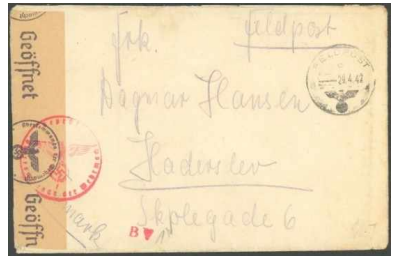 Geöffnet
Geöffn
Frk. Feldpost
FELDPOST
29.4.42
Dagmar Hansen
Haderslev
Skolegade 6
mark
B